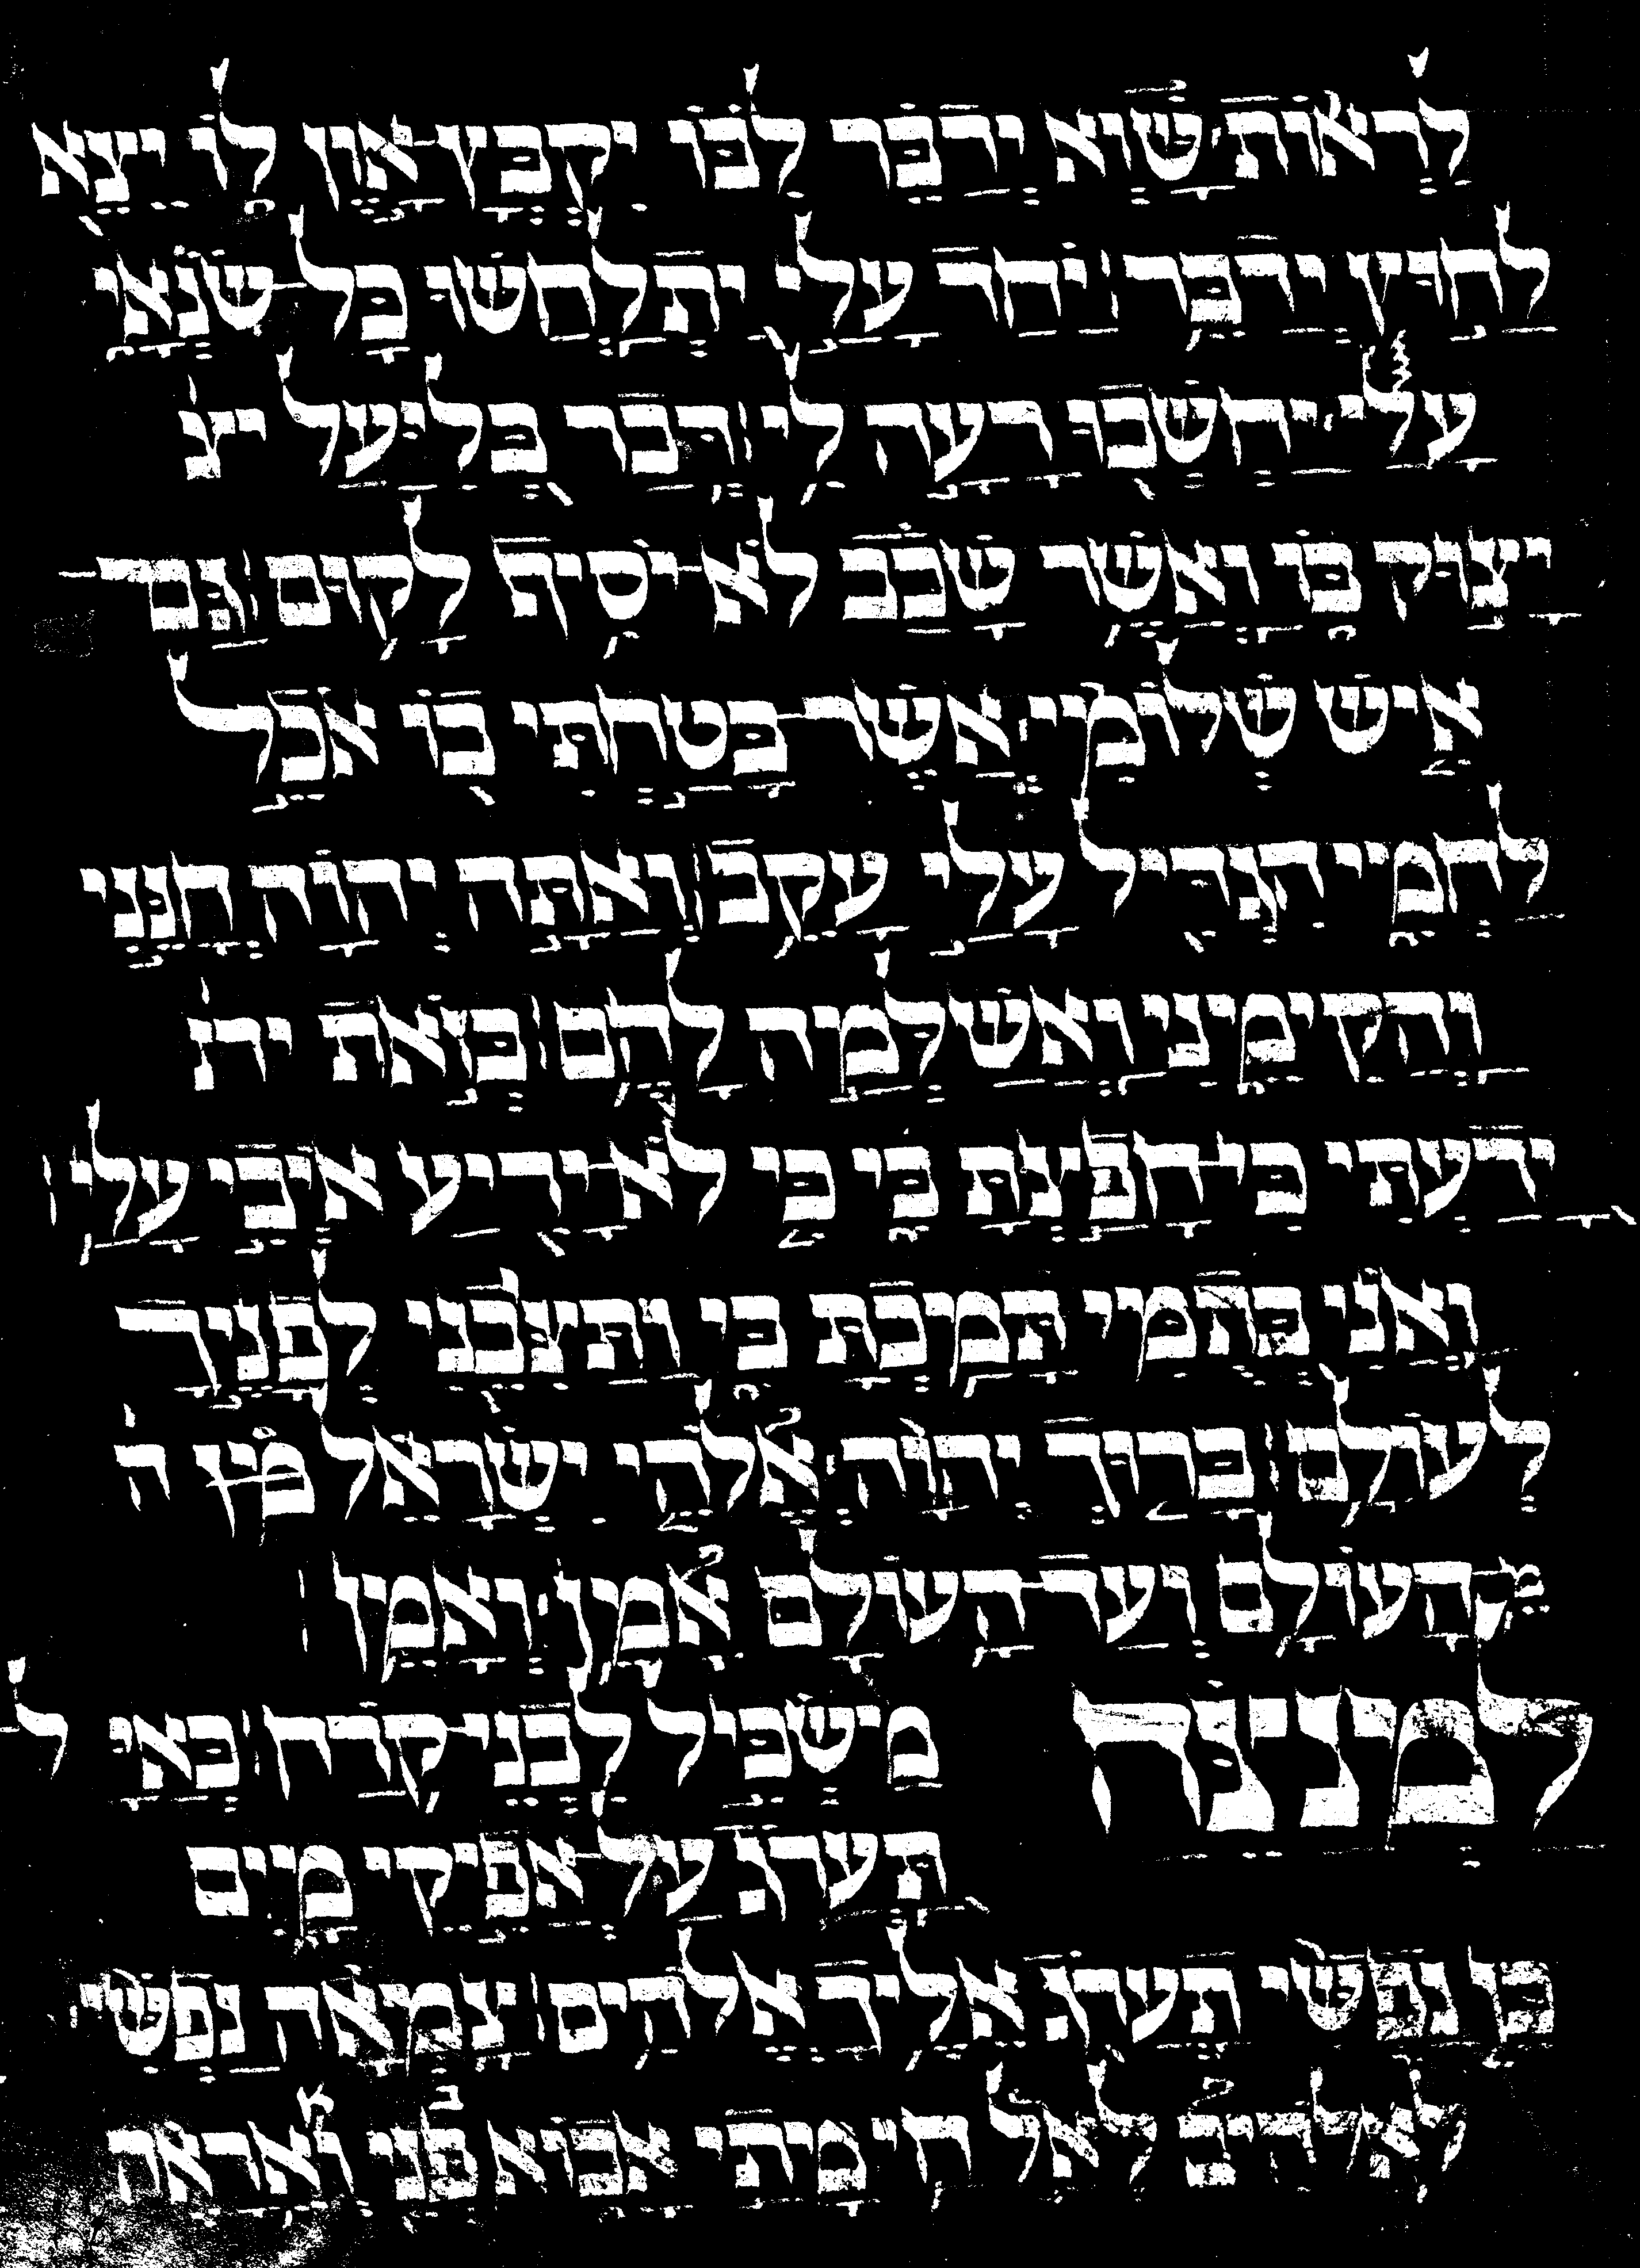 לראות שוא ידבר לבו יקבץ־און לו יצא
לחוץ ידבר׃ יחד עלי יתלחשו כל־שנאי
עלי יחשבו רעה לי׃ דבר בליעל יצ
יצוק בו ואשר שכב לא־יסיף לקום׃ גם־
איש שלומי אשר־בטחתי בו אכל
לחמי הגדיל עלי עקב׃ ואתה יהוה חנני
והקימני ואשלמה להם׃ בזאת יד
ידעתי כי־חפצת בי כי לא־יריע איבי עלי׃
ואני בתמי תמכת בי ותצבני לפניך
לעולם׃ ברוך יהוה אלהי ישראל מן ה
מהעולם ועד־העולם אמן ואמן׃
למנצח משכיל לבני־קרח׃ כאיל
תערג על־אפיקי מים
כן נפשי תערג אליך אלהים׃ צמאה נפשי
לאלהים לאל חי מתי אבוא פני ואראה